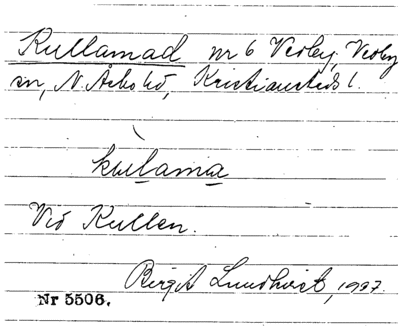 Kullamad nr 6 Vedby, Vedby
sn, N. Åsbo hd, Kristianstads l.
kullama
Vid Kullen.
Birgit Lundkvist, 1937.
Nr 5506.